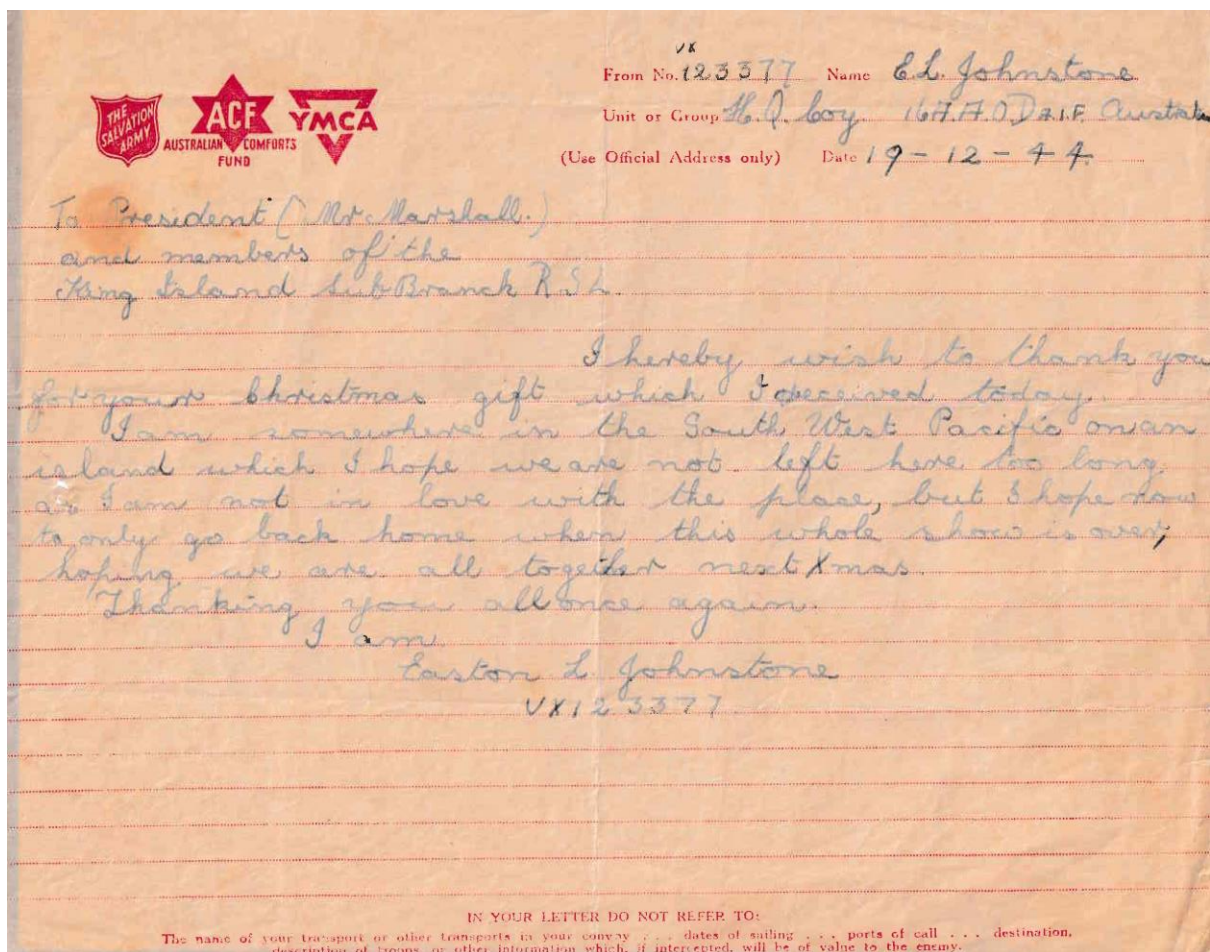 THE
SALVATION
ARMY
ACF
AUSTRALIAN COMFORTS
FUND
YMCA
From No. VX 123377 Name E L. Johnstone
Unit or Group H.Q. Coy. A.I.F. Australia
(Use Official Address only) Date 19-12-44
To President (Mr. Marshall.)
and members of the
King Island Sub Branch R.S.L.
I hereby wish to thank you
for your Christmas gift which I received today.
I am somewhere in the South West Pacific on an
island which I hope we are not left here too long.
as I am not in love with the place, but I hope now
to only go back home when this whole show is over,
hoping we are all together next Xmas.
Thanking you all once again.
I am
Easton L. Johnstone
VX123377.
IN YOUR LETTER DO NOT REFER TO:
The name of your transport or other transports in your convoy . . . dates of sailing . . . ports of call . . . destination,
description of troops, or other information which, if intercepted, will be of value to the enemy.